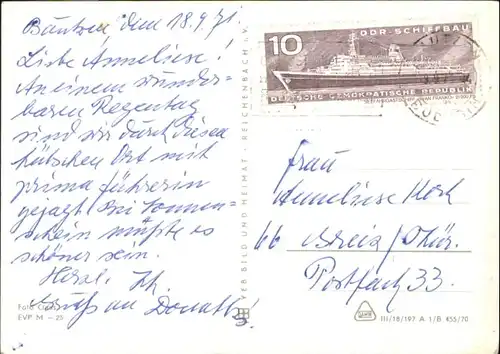 Bautzen dem 18.9.71.
Liebe Anneliese!
An einem wunder-
baren Regentag
sind wir durch diesen
hübschen Ort mit
prima Führerin
gejagt. Bei Sonnen-
schein müßte es
schöner sein.
Herzl.
Gruß an Donaths!
Foto
EVP M – 25
VEB BILD UND HEIMAT REICHENBACH I. V.
10
DDR-SCHIFFBAU
DEUTSCHE DEMOKRATISCHE REPUBLIK
Frau
Anneliese Koch
66 Greiz/Thür.
Postfach 33.
III/18/197 A 1/B 455/70